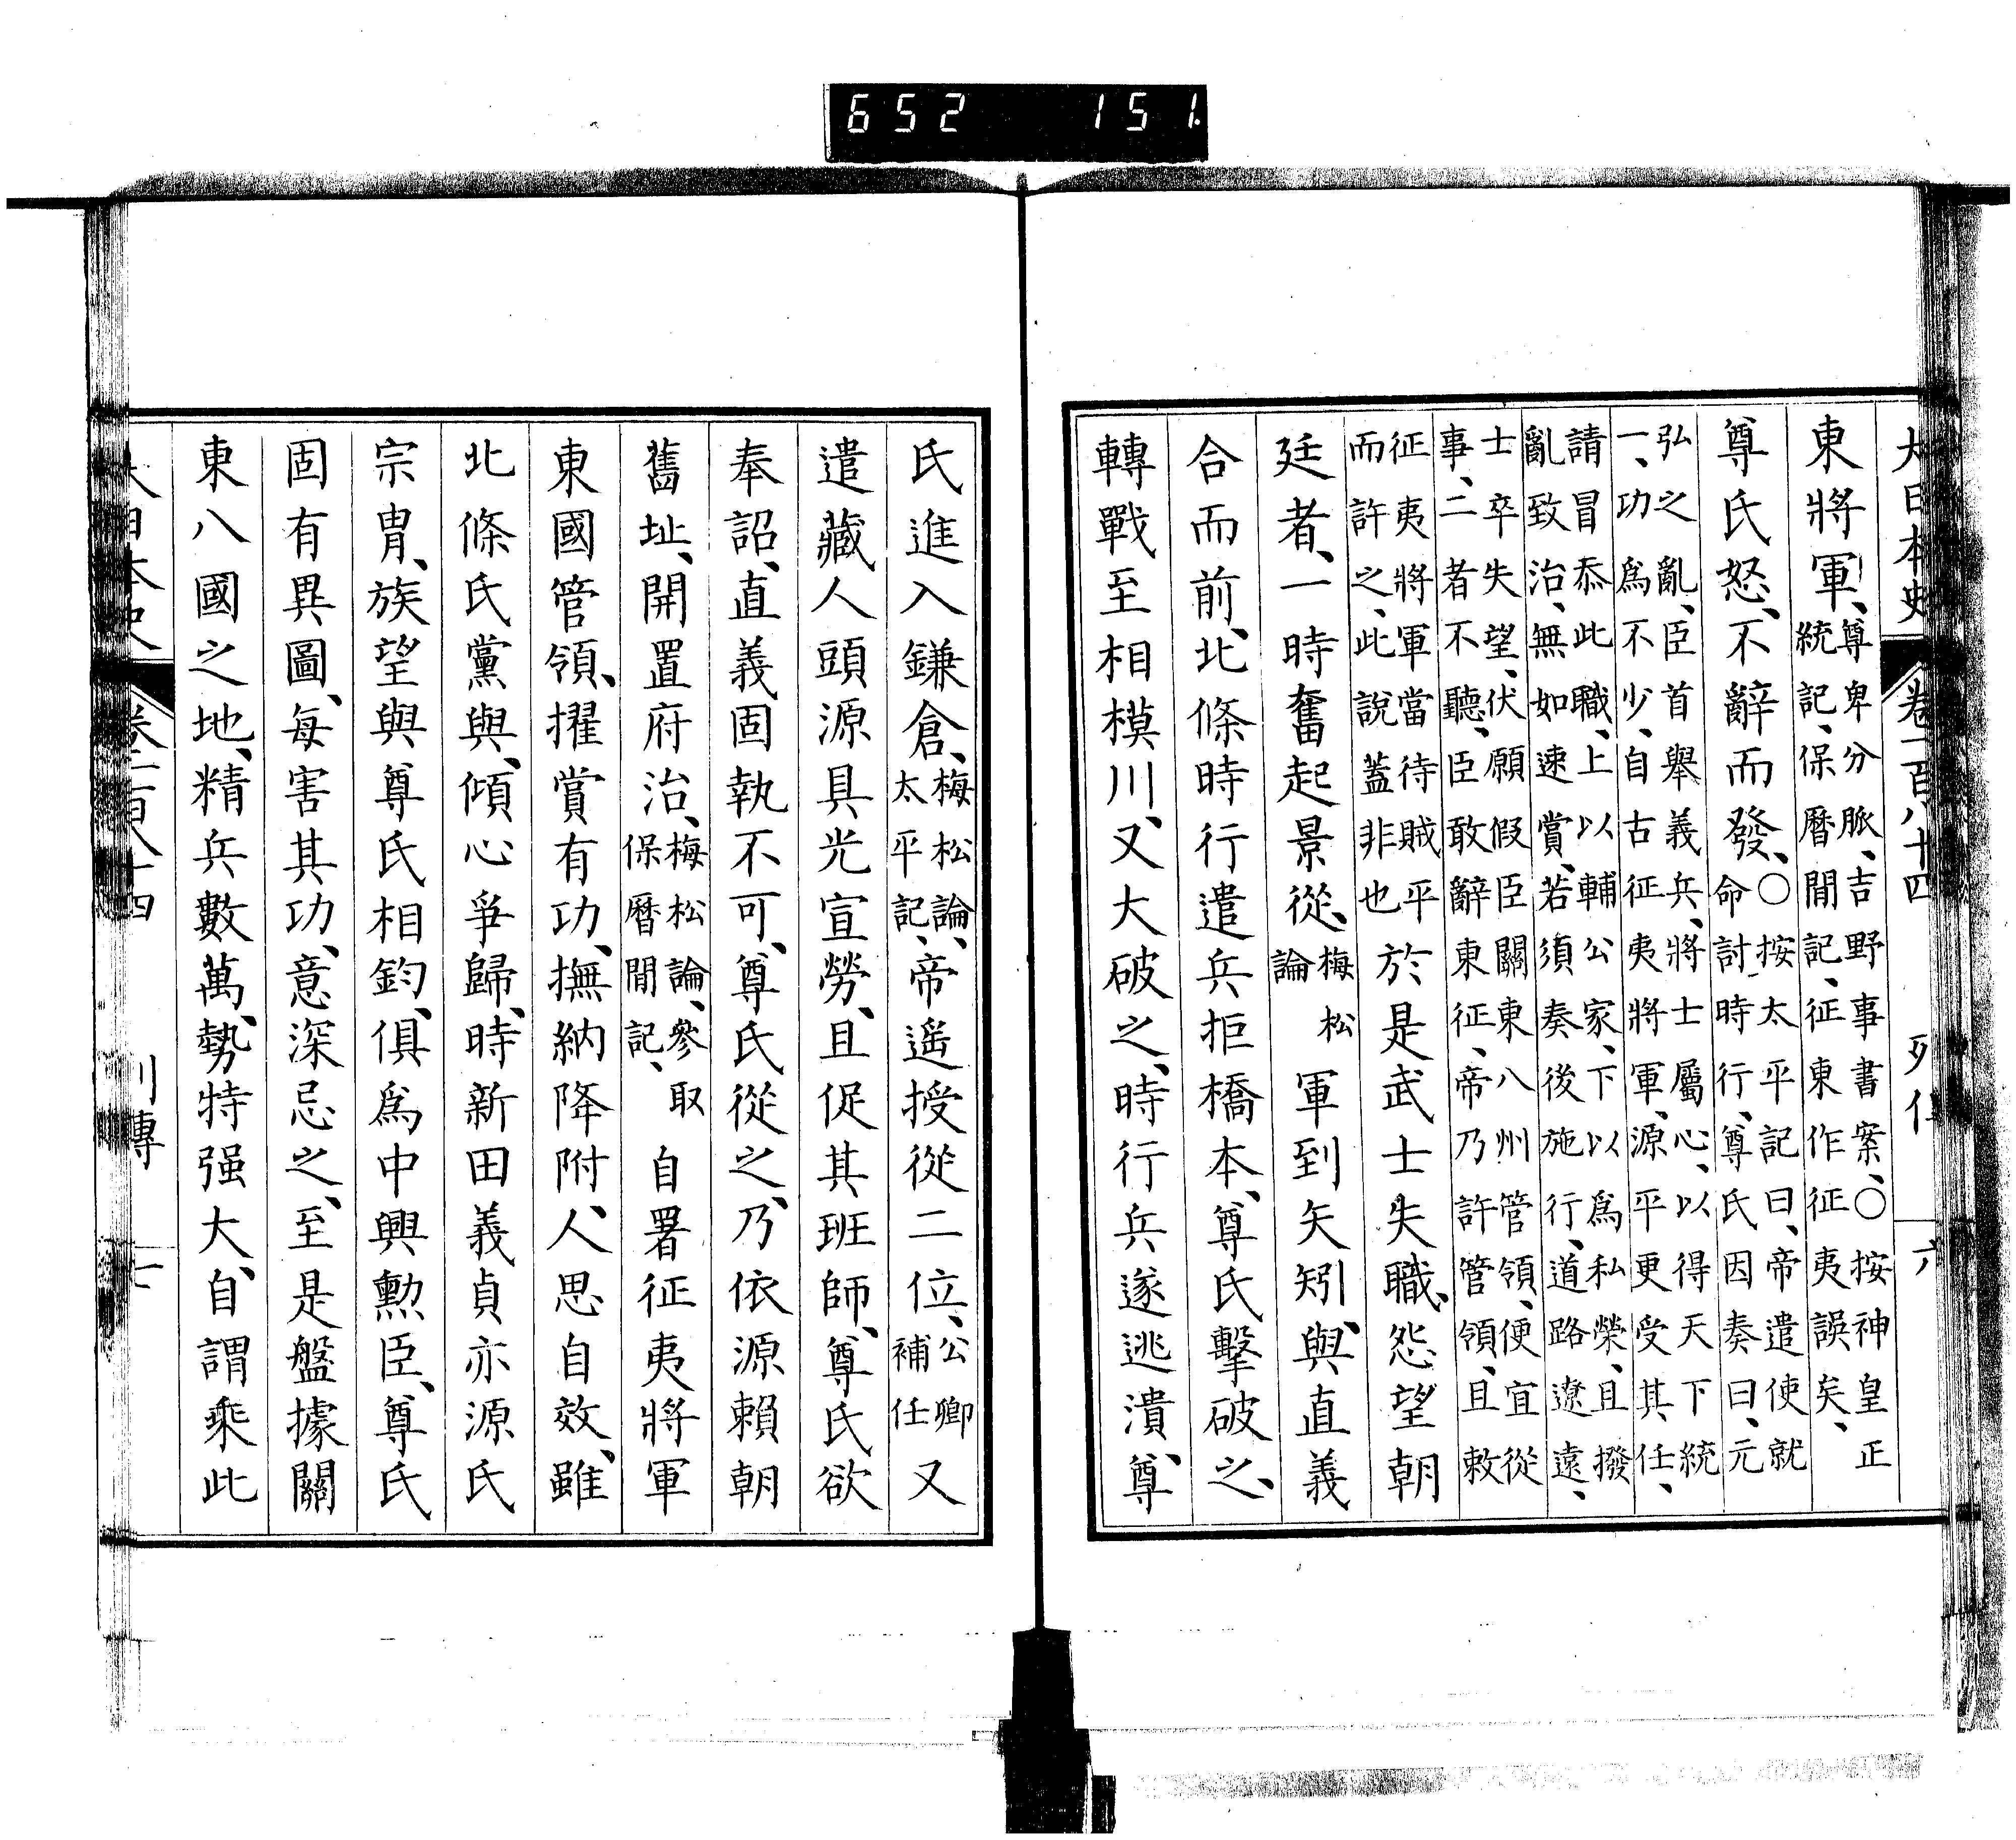 652 151
大日本史 卷一百八十四 列傳 六
東將軍、尊卑分脈、吉野事書案、○按神皇正
統記、保曆間記、征東作征夷誤矣、
尊氏怒、不辭而發、○按太平記曰、帝遣使就
命討時行、尊氏因奏曰、元
弘之亂、臣首舉義兵、將士屬心、以得天下統
一、功爲不少、自古征夷將軍、源平更受其任、
請冒忝此職、上以輔公家、下以爲私榮、且撥
亂致治、無如速賞、若須奏後施行、道路遼遠、
士卒失望、伏願假臣關東八州管領、便宜從
事、二者不聽、臣敢辭東征、帝乃許管領、且敕
征夷將軍當待賊平
而許之、此說蓋非也
於是武士失職、怨望朝
廷者、一時奮起景從、梅松
論
軍到矢矧、與直義
合而前、北條時行遣兵拒橋本、尊氏擊破之、
轉戰至相模川、又大破之、時行兵遂逃潰、尊
氏進入鎌倉、梅松論、
太平記、
帝遥授從二位、公卿
補任
又
遣藏人頭源具光宣勞、且促其班師、尊氏欲
奉詔、直義固執不可、尊氏從之、乃依源賴朝
舊址、開置府治、梅松論、參取
保曆間記、
自署征夷將軍
東國管領、擢賞有功、撫納降附、人思自效、雖
北條氏黨與、傾心爭歸、時新田義貞亦源氏
宗冑、族望與尊氏相鈞、俱爲中興勲臣、尊氏
固有異圖、每害其功、意深忌之、至是盤據關
東八國之地、精兵數萬、勢特强大、自謂乘此
大日本史 卷一百八十四 列傳 七